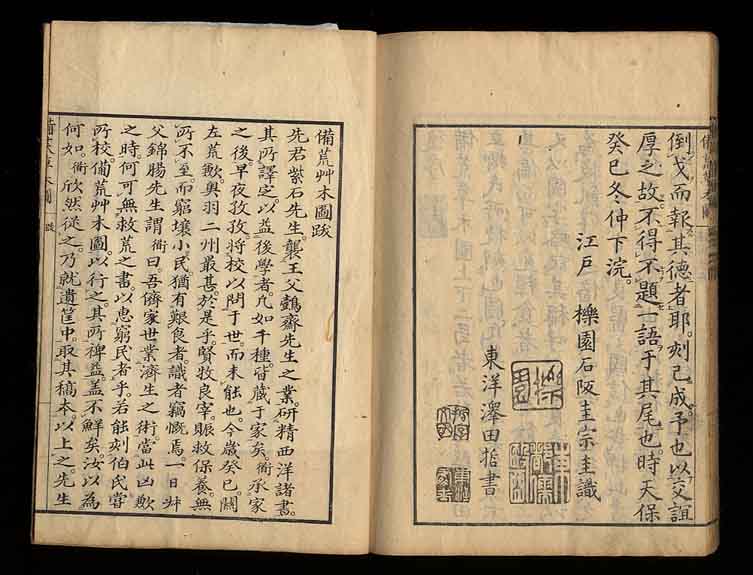 倒戈而報其德者耶。刻已成。予也以交誼
厚之故。不得不題一語于其尾也。時天保
癸巳冬仲下浣。
江戸 櫟園石阪圭宗圭識
東洋澤田哲書
備荒艸木圖跋
先君紫石先生。襲王父鷧齋先生之業。研精西洋諸書。
其所譯定。以益後學者。凡如干種。皆藏于家矣。衝承家
之後。早夜孜孜。將校以問于世。而未能也。今歳癸巳。關
左荒歉。奥羽二州最甚。於是乎。賢牧良宰。賑救保養。無
所不至。而窮壤小民。猶有艱食者。識者竊慨焉。一日舛
父錦腸先生謂衝曰。吾儕家世業濟生之術。當此凶歉
之時。何可無救荒之書。以惠窮民者乎。若能刻伯氏嘗
所校備荒艸木圖。以行之。其所裨益。蓋不鮮矣。汝以為
何如。衝欣然從之。乃就遺筐中。取其稿本。以上之。先生
備荒草木圖 跋